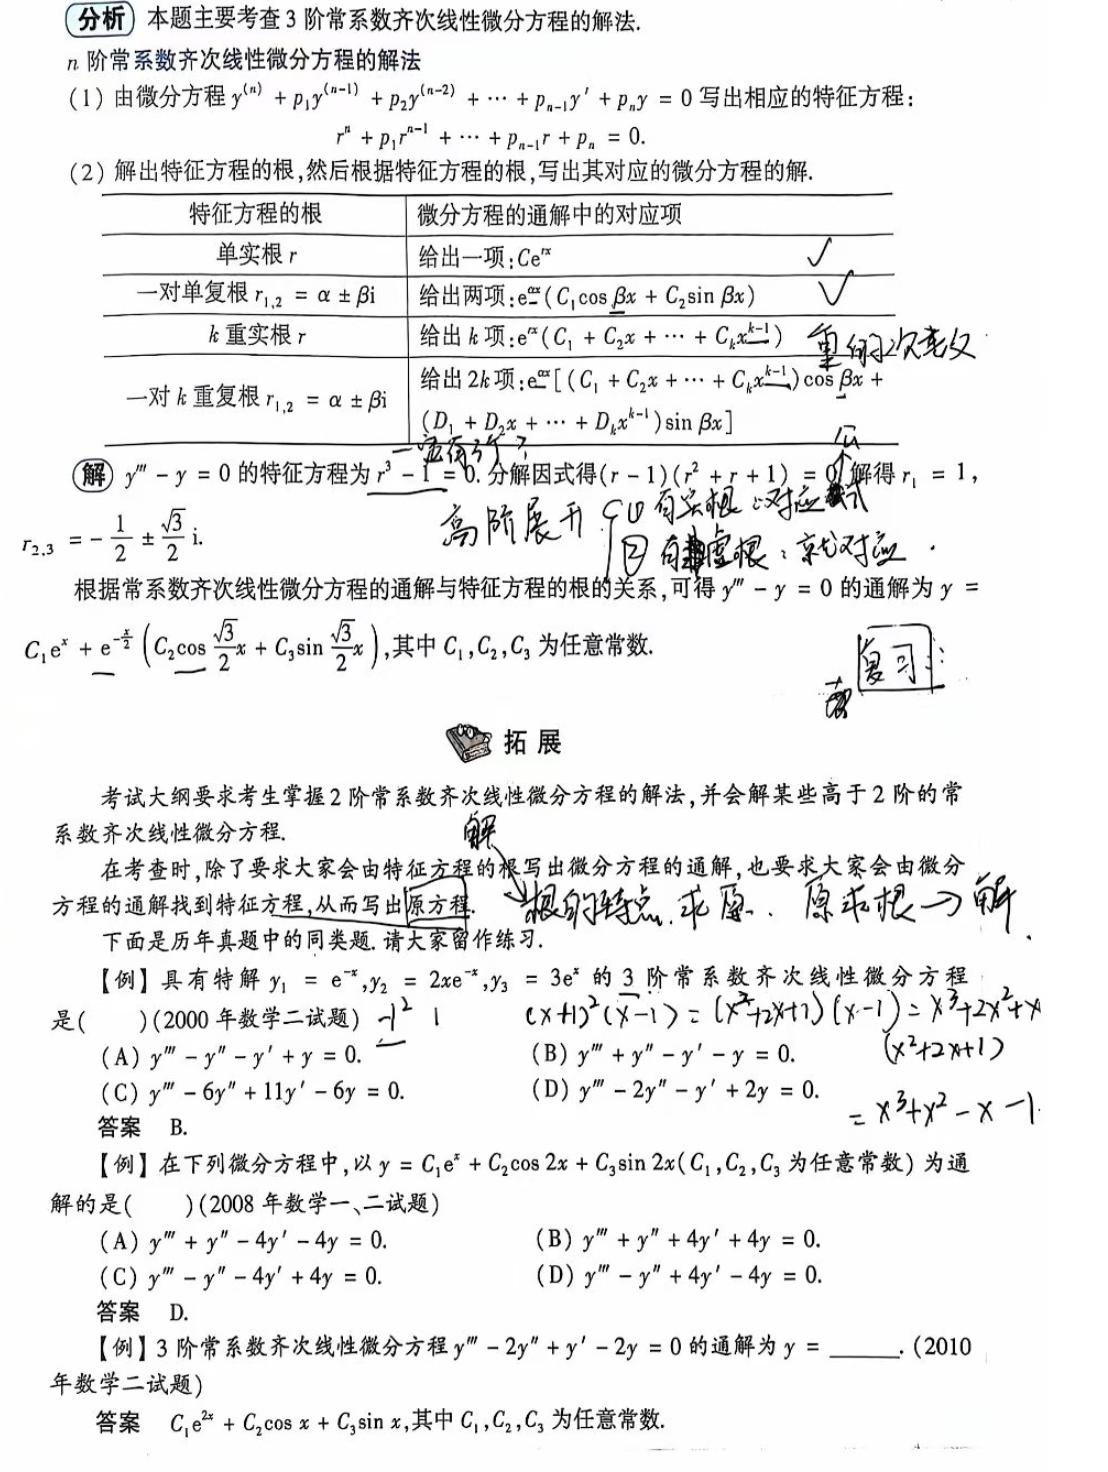 分析 本题主要考查3阶常系数齐次线性微分方程的解法.
n 阶常系数齐次线性微分方程的解法
(1) 由微分方程 y⁽ⁿ⁾ + p₁y⁽ⁿ⁻¹⁾ + p₂y⁽ⁿ⁻²⁾ + ⋯ + pₙ₋₁y′ + pₙy = 0 写出相应的特征方程:
rⁿ + p₁rⁿ⁻¹ + ⋯ + pₙ₋₁r + pₙ = 0.
(2) 解出特征方程的根,然后根据特征方程的根,写出其对应的微分方程的解.
特征方程的根 微分方程的通解中的对应项
单实根 r 给出一项:Ce^{rx} ✓
一对单复根 r₁,₂ = α ± βi 给出两项:e^{αx}(C₁cos βx + C₂sin βx) ✓
k 重实根 r 给出 k 项:e^{rx}(C₁ + C₂x + ⋯ + Cₖx^{k-1}) 重的次
一对 k 重复根 r₁,₂ = α ± βi 给出 2k 项:e^{αx}[(C₁ + C₂x + ⋯ + Cₖx^{k-1})cos βx +
(D₁ + D₂x + ⋯ + Dₖx^{k-1})sin βx]
解 y‴ - y = 0 的特征方程为 r³ - 1 = 0. 分解因式得(r - 1)(r² + r + 1) = 0, 解得 r₁ = 1,
高阶展开 ① 有实根:对应
r₂,₃ = -1/2 ± √3/2 i.
② 有虚根:就对应.
根据常系数齐次线性微分方程的通解与特征方程的根的关系,可得 y‴ - y = 0 的通解为 y =
C₁eˣ + e^{-x/2}(C₂cos √3/2 x + C₃sin √3/2 x),其中 C₁,C₂,C₃ 为任意常数.
复习
拓展
考试大纲要求考生掌握2阶常系数齐次线性微分方程的解法,并会解某些高于2阶的常
系数齐次线性微分方程.
解
在考查时,除了要求大家会由特征方程的根写出微分方程的通解,也要求大家会由微分
方程的通解找到特征方程,从而写出原方程.
根的特点.求原. 原求根→解.
下面是历年真题中的同类题.请大家留作练习.
【例】具有特解 y₁ = e⁻ˣ,y₂ = 2xe⁻ˣ,y₃ = 3eˣ 的 3 阶常系数齐次线性微分方程
是( )(2000年数学二试题) -1² 1 (x+1)²(x-1) = (x²+2x+1)(x-1) = x³+2x²+x
(A) y‴ - y″ - y′ + y = 0. (B) y‴ + y″ - y′ - y = 0. (x²+2x+1)
(C) y‴ - 6y″ + 11y′ - 6y = 0. (D) y‴ - 2y″ - y′ + 2y = 0.
= x³+x²-x-1
答案 B.
【例】在下列微分方程中,以 y = C₁eˣ + C₂cos 2x + C₃sin 2x(C₁,C₂,C₃ 为任意常数)为通
解的是( )(2008年数学一、二试题)
(A) y‴ + y″ - 4y′ - 4y = 0. (B) y‴ + y″ + 4y′ + 4y = 0.
(C) y‴ - y″ - 4y′ + 4y = 0. (D) y‴ - y″ + 4y′ - 4y = 0.
答案 D.
【例】3阶常系数齐次线性微分方程 y‴ - 2y″ + y′ - 2y = 0 的通解为 y = ______. (2010
年数学二试题)
答案 C₁e²ˣ + C₂cos x + C₃sin x,其中 C₁,C₂,C₃ 为任意常数.